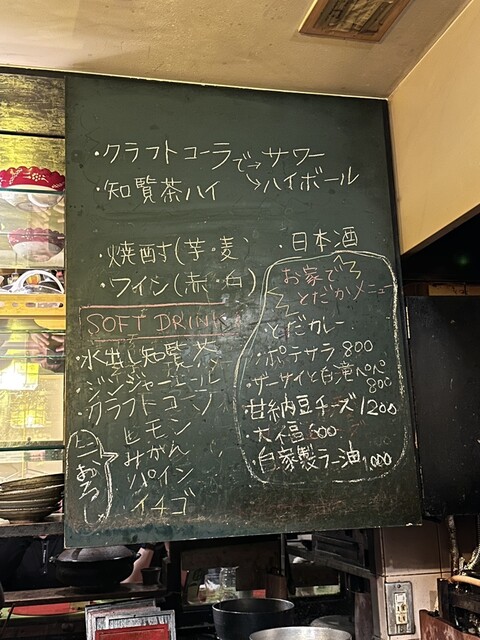 ・クラフトコーラで→サワー
↘ハイボール
・知覧茶ハイ
・焼酎(芋・麦)
・日本酒
・ワイン(赤・白)
SOFT DRINK
・水出し知覧茶
・ジンジャーエール
・クラフトコーラ
レモン
みかん
パイン
イチゴ
お家で
とだかメニュー
・とだカレー
・ポテサラ 800
・ザーサイと白滝ペペ
800
・甘納豆チーズ 1200
・大福 600
・自家製ラー油 1000